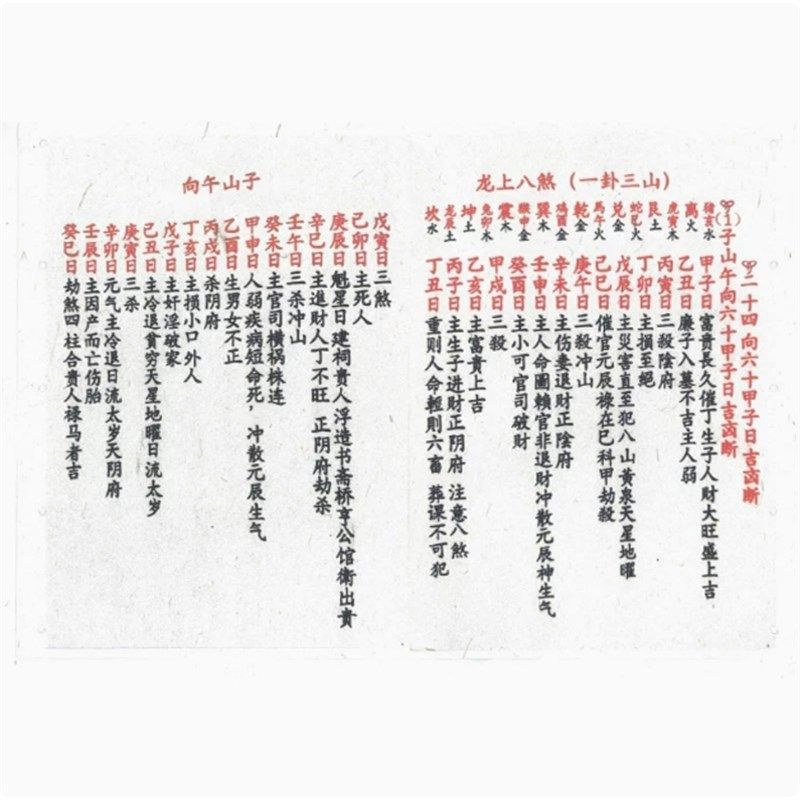 龙上八煞（一卦三山）
二十四向六十甲子日吉凶断
(1)子山午向六十甲子日吉凶断
猪亥水
离火
虎寅木
艮土
蛇巳火
兑金
马午火
乾金
鸡酉金
巽木
猴申金
震木
兔卯木
坤土
龙辰土
坎水
甲子日富贵長久催丁生子人财大旺盛上吉
乙丑日廉子入墓不吉主人弱
丙寅日三殺陰府
丁卯日主损至絕
戊辰日主災害直至犯八山黄泉天星地曜
己巳日催官元辰祿在巳科甲劫殺
庚午日三殺冲山
辛未日主伤妻退财正陰府
壬申日主人命圖賴官非退财冲散元辰神生气
癸酉日主小可官司破财
甲戌日三殺
乙亥日主富貴上吉
丙子日主生子进财正阴府 注意八煞
丁丑日重則人命輕則六畜 葬课不可犯
向午山子
戊寅日三煞
己卯日主死人
庚辰日魁星日 建祠貴人浮造书斋桥亭公馆衛出貴
辛巳日主進财人丁不旺 正阴府劫杀
壬午日三杀冲山
癸未日主官司横祸株连
甲申日人弱疾病短命死，冲散元辰生气
乙酉日生男女不正
丙戌日杀阴府
丁亥日主损小口外人
戊子日主奸淫破家
己丑日主冷退貧穷天星地曜日流太岁
庚寅日三杀
辛卯日元气主冷退日流太岁天阴府
壬辰日主因产而亡伤胎
癸巳日劫煞四柱合貴人祿马者吉